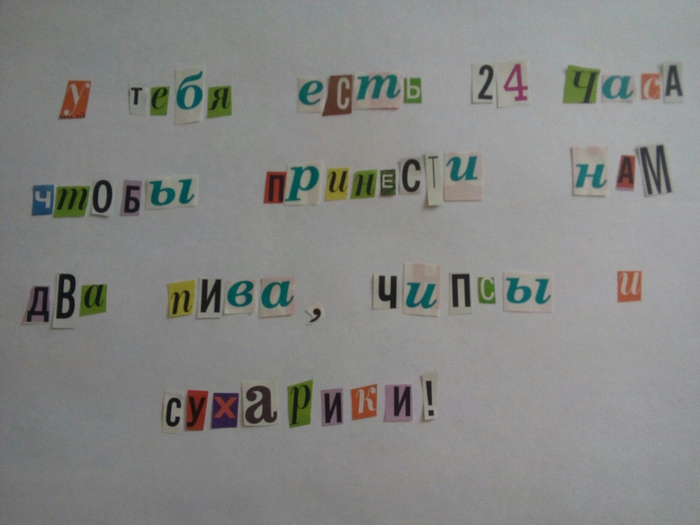 у тебя есть 24 часа
чтобы принести нам
два пива, чипсы и
сухарики!